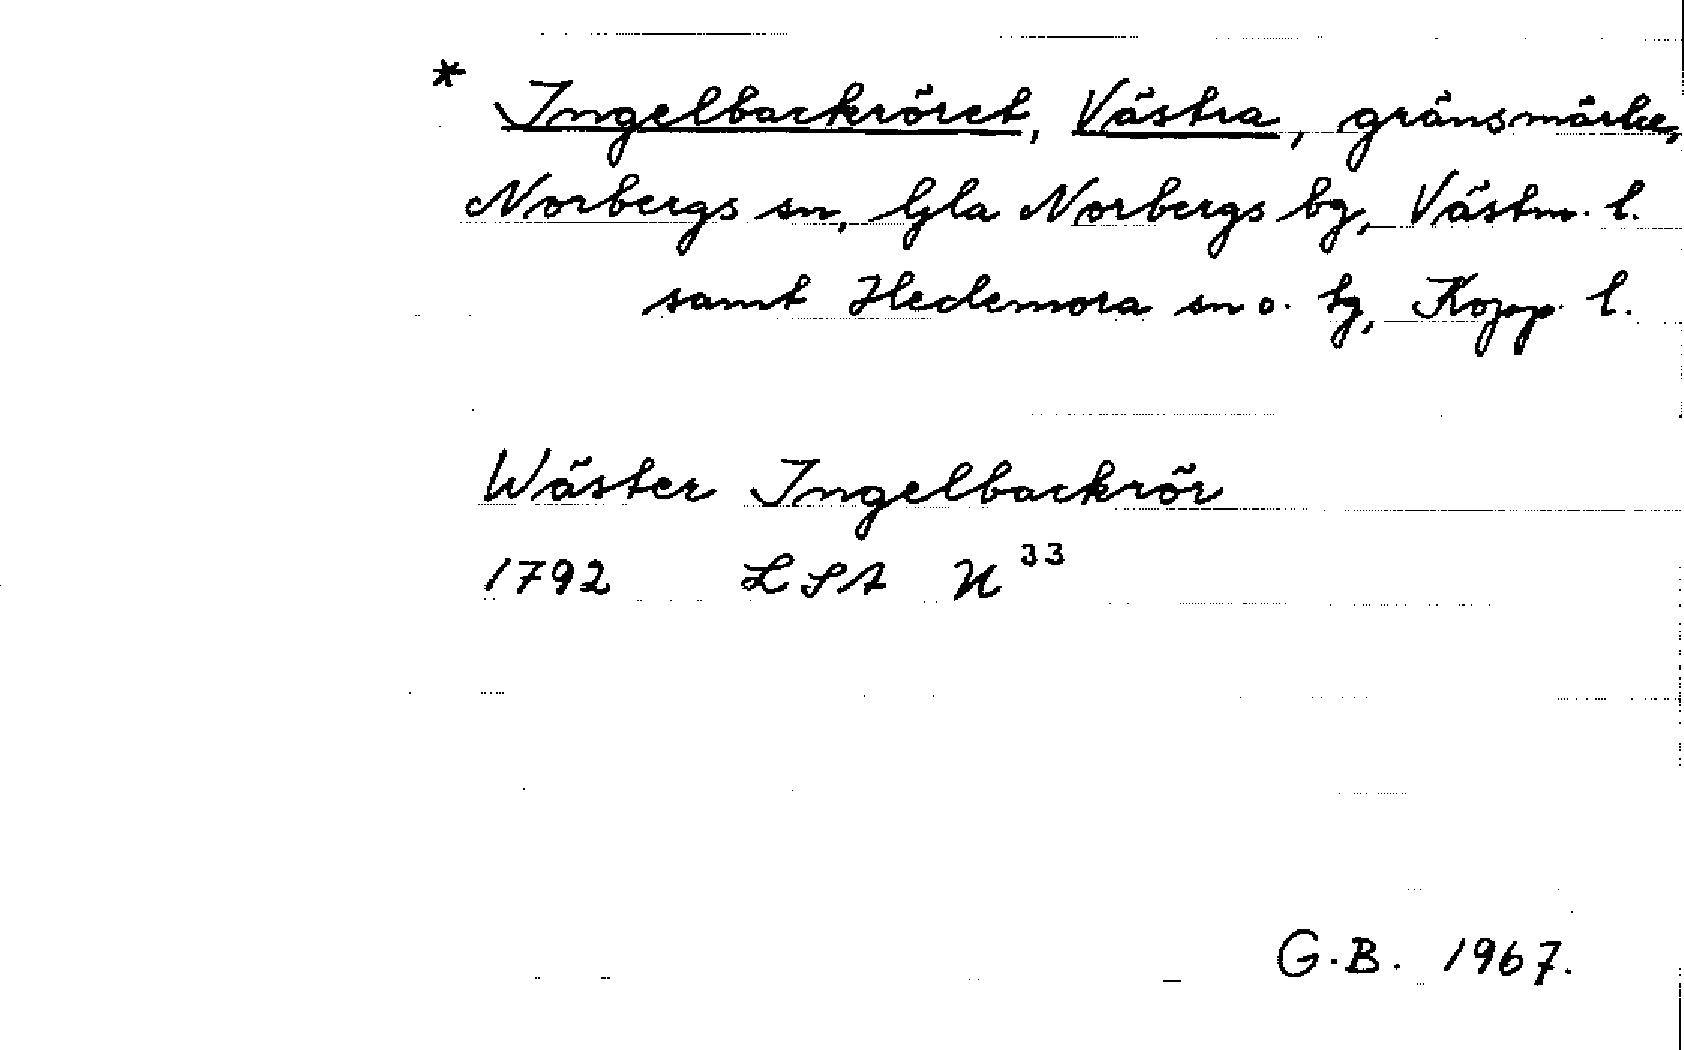 * Ingelbackröret, Västra, gränsmärke,
Norbergs sn, Gla Norbergs bg, Västm. l.
samt Hedemora sn o. tg, Kopp. l.
Wäster Ingelbackrör
1792 LSA U 33
G.B. 1967.